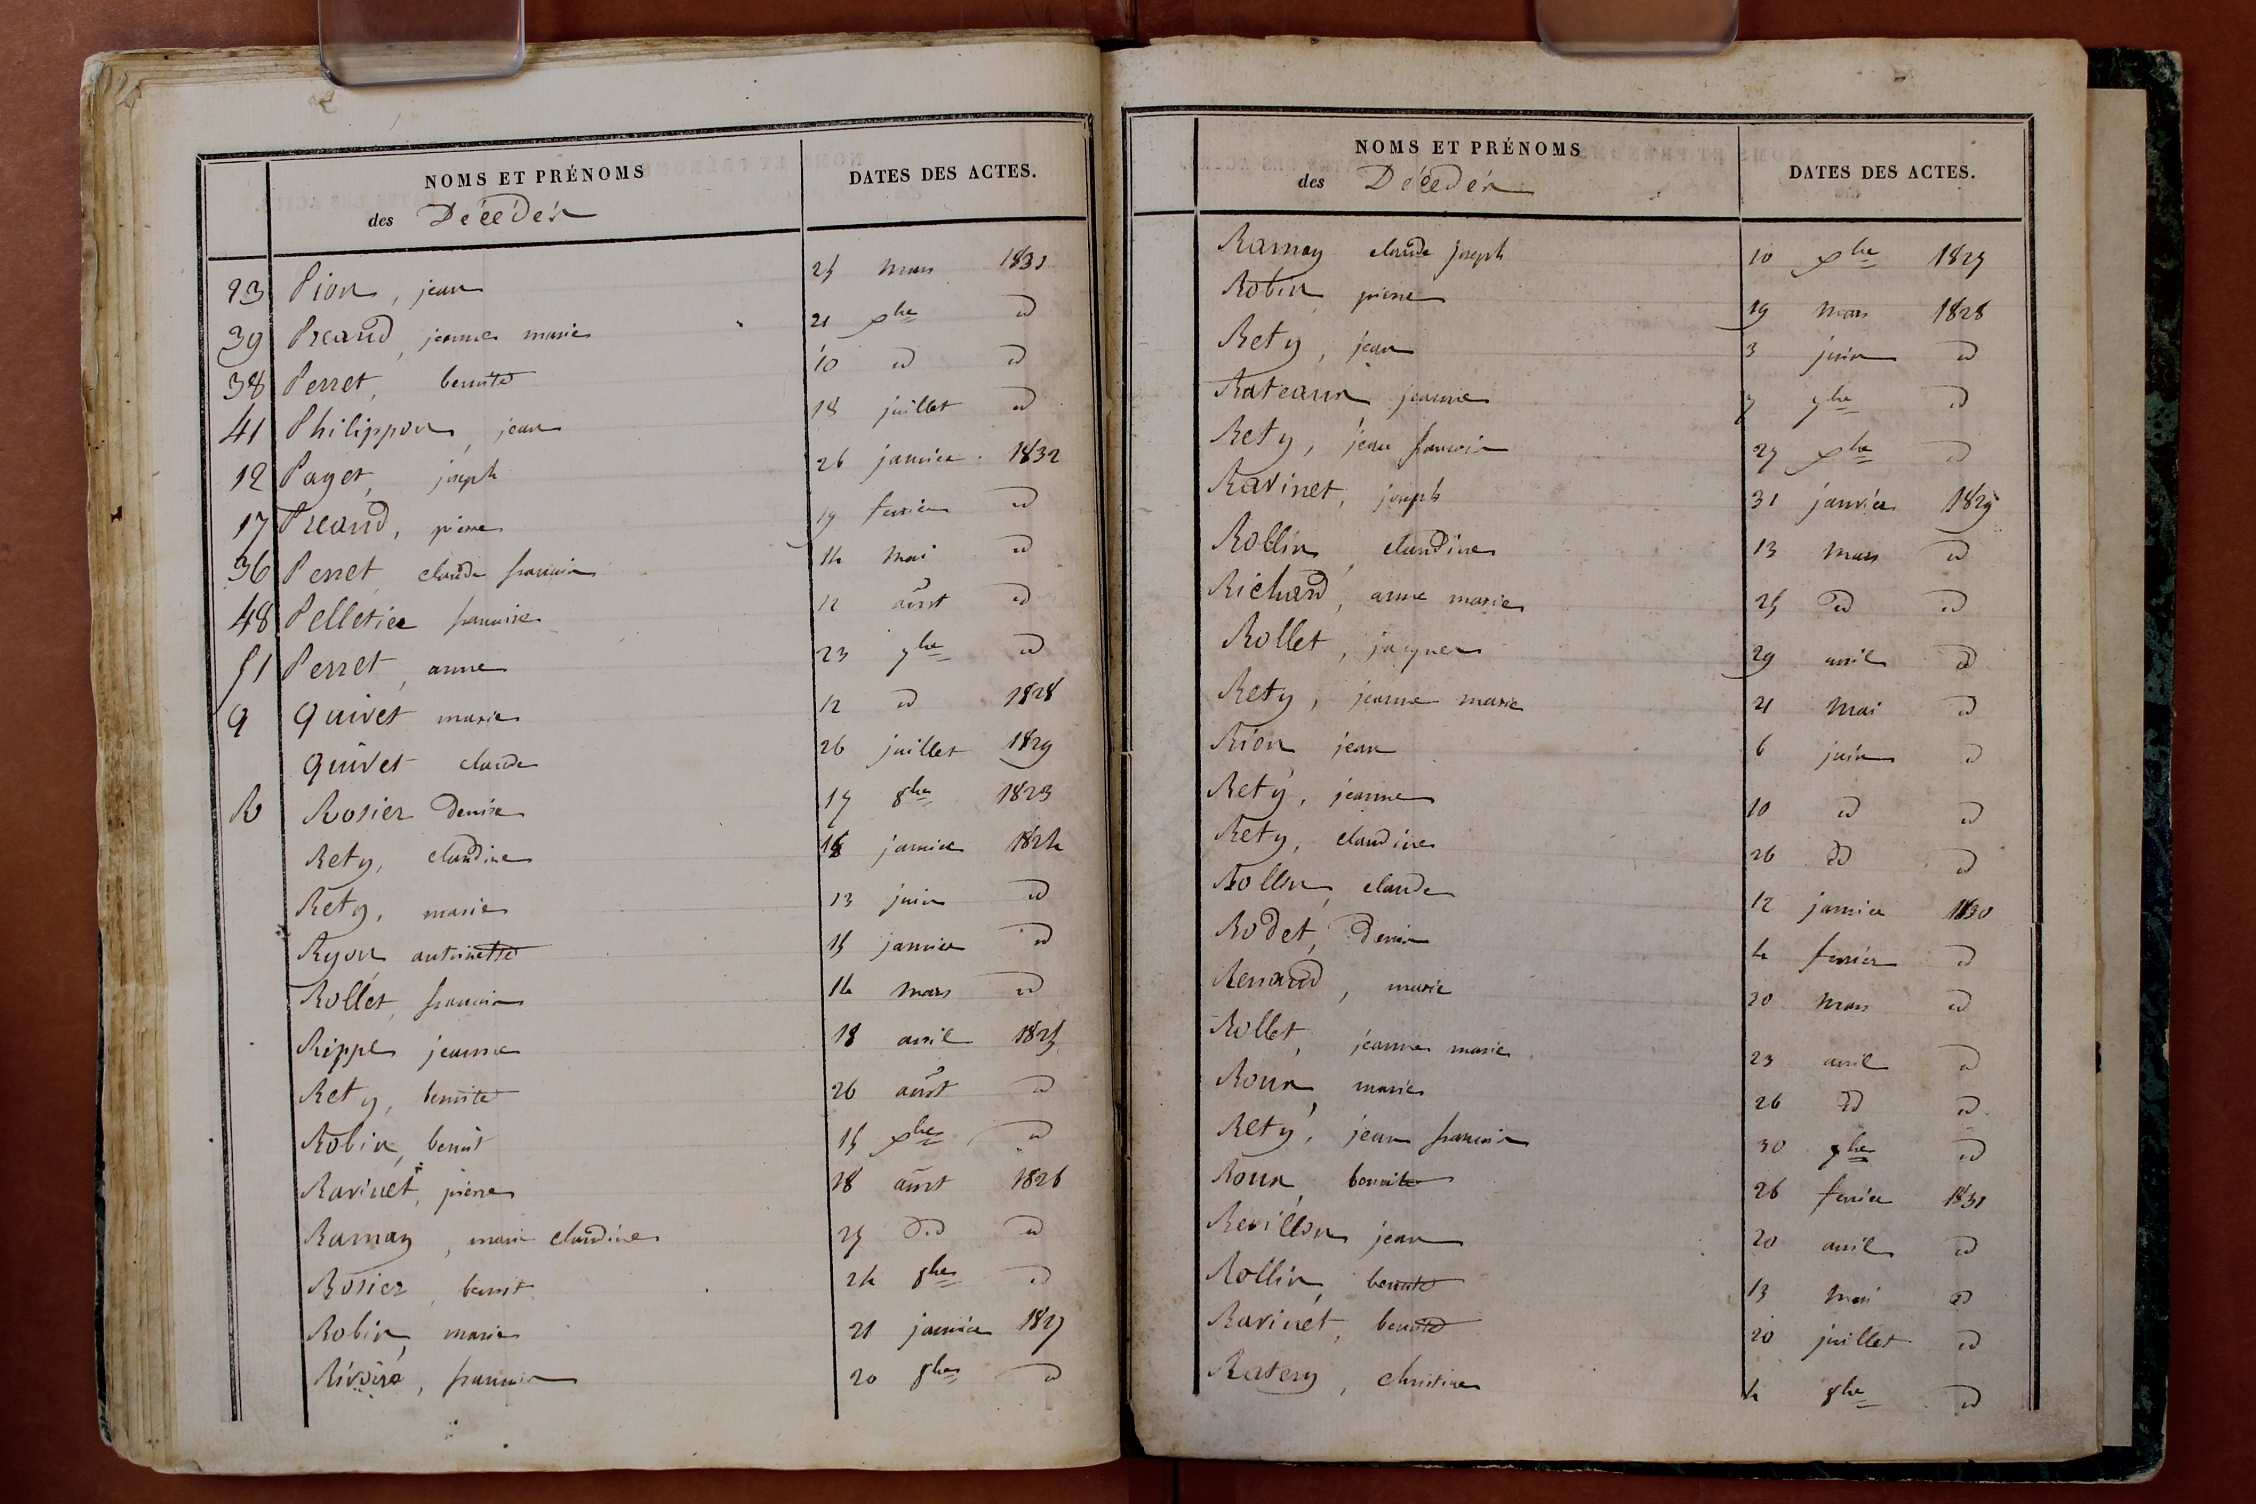 NOMS ET PRÉNOMS DATES DES ACTES.
des Décédés
23 Pion, jean 25 mars 1831
39 Préaud, jeanne marie 21 xbre id
38 Perret, benoite 10 id id
41 Philippon, jean 18 juillet id
12 Paget, joseph 26 janvier 1832
17 Préaud, pierre 19 fevrier id
36 Perret, claude francois 14 mai id
48 Pelletier francoise 12 août id
51 Perret, anne 23 9bre id
Q Quivet marie 12 id 1828
Quivet claude 26 juillet 1829
R Rosier Denise 17 8bre 1823
Rety, claudine janvier 1824
Rety, marie 13 juin id
Ryon antoinette 15 janvier id
Rollet, francois 14 mars id
Rippe jeanne 18 avril 1825
Rety, benoite 26 août id
Robin, benoit 15 xbre id
Ravinet, pierre 18 août 1826
Ramay, marie claudine 25 id id
Rosier, benoit 24 8bre id
Robin, marie 21 janvier 1827
Rivoire, francois 20 8bre id
NOMS ET PRÉNOMS DATES DES ACTES.
des Décédés
Ramay claude joseph 10 xbre 1827
Robin pierre 19 mars 1828
Rety, jean 3 juin id
Rateaux, jeanne 7 9bre id
Rety, jean francois 27 xbre id
Ravinet, joseph 31 janvier 1829
Rollin, claudine 13 mars id
Richard, anne marie 25 id id
Rollet, jacques 29 avril id
Rety, jeanne marie 21 mai id
Rion, jean 6 juin id
Rety, jeanne 10 id id
Rety, claudine 26 id id
Rollin, claude 12 janvier 1830
Rodet, Denis 4 fevrier id
Renaud, marie 20 mars id
Rollet, jeanne marie 23 avril id
Roux, marie 26 id id
Rety, jean francois 30 9bre id
Roux, benoite 26 fevrier 1831
Revillon, jean 20 avril id
Rollin, benoite 13 mai id
Ravinet, benoite 20 juillet id
Ratery, christine 4 8bre id